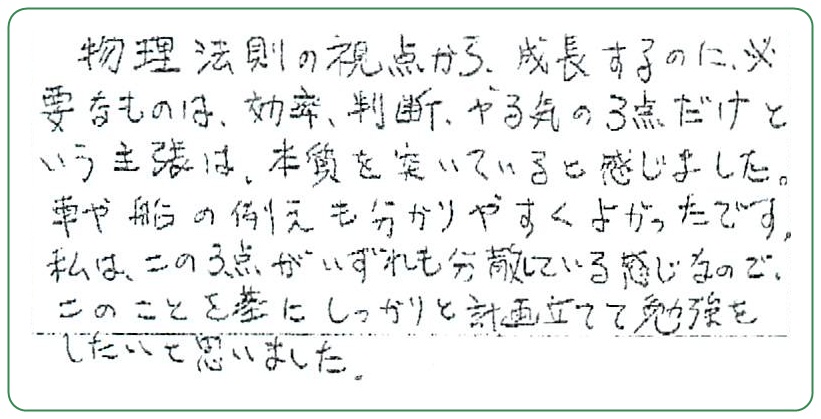 物理法則の視点から、成長するのに、必
要なものは、効率、判断、やる気の3点だけと
いう主張は、本質を突いていると感じました。
車や船の例えも分かりやすくよかったです。
私は、この3点がいずれも分散している感じなので、
このことを基にしっかりと計画立てて勉強を
したいと思いました。